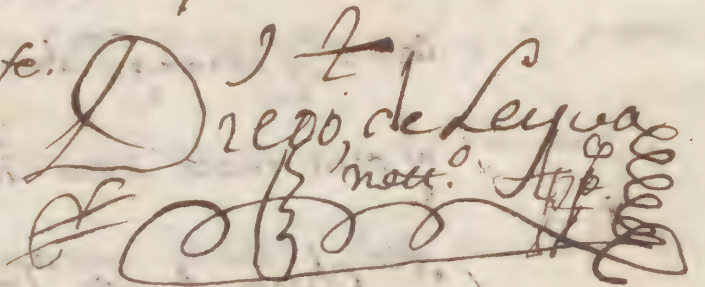 fe.
Diego, de Leyva
nott.º App.co